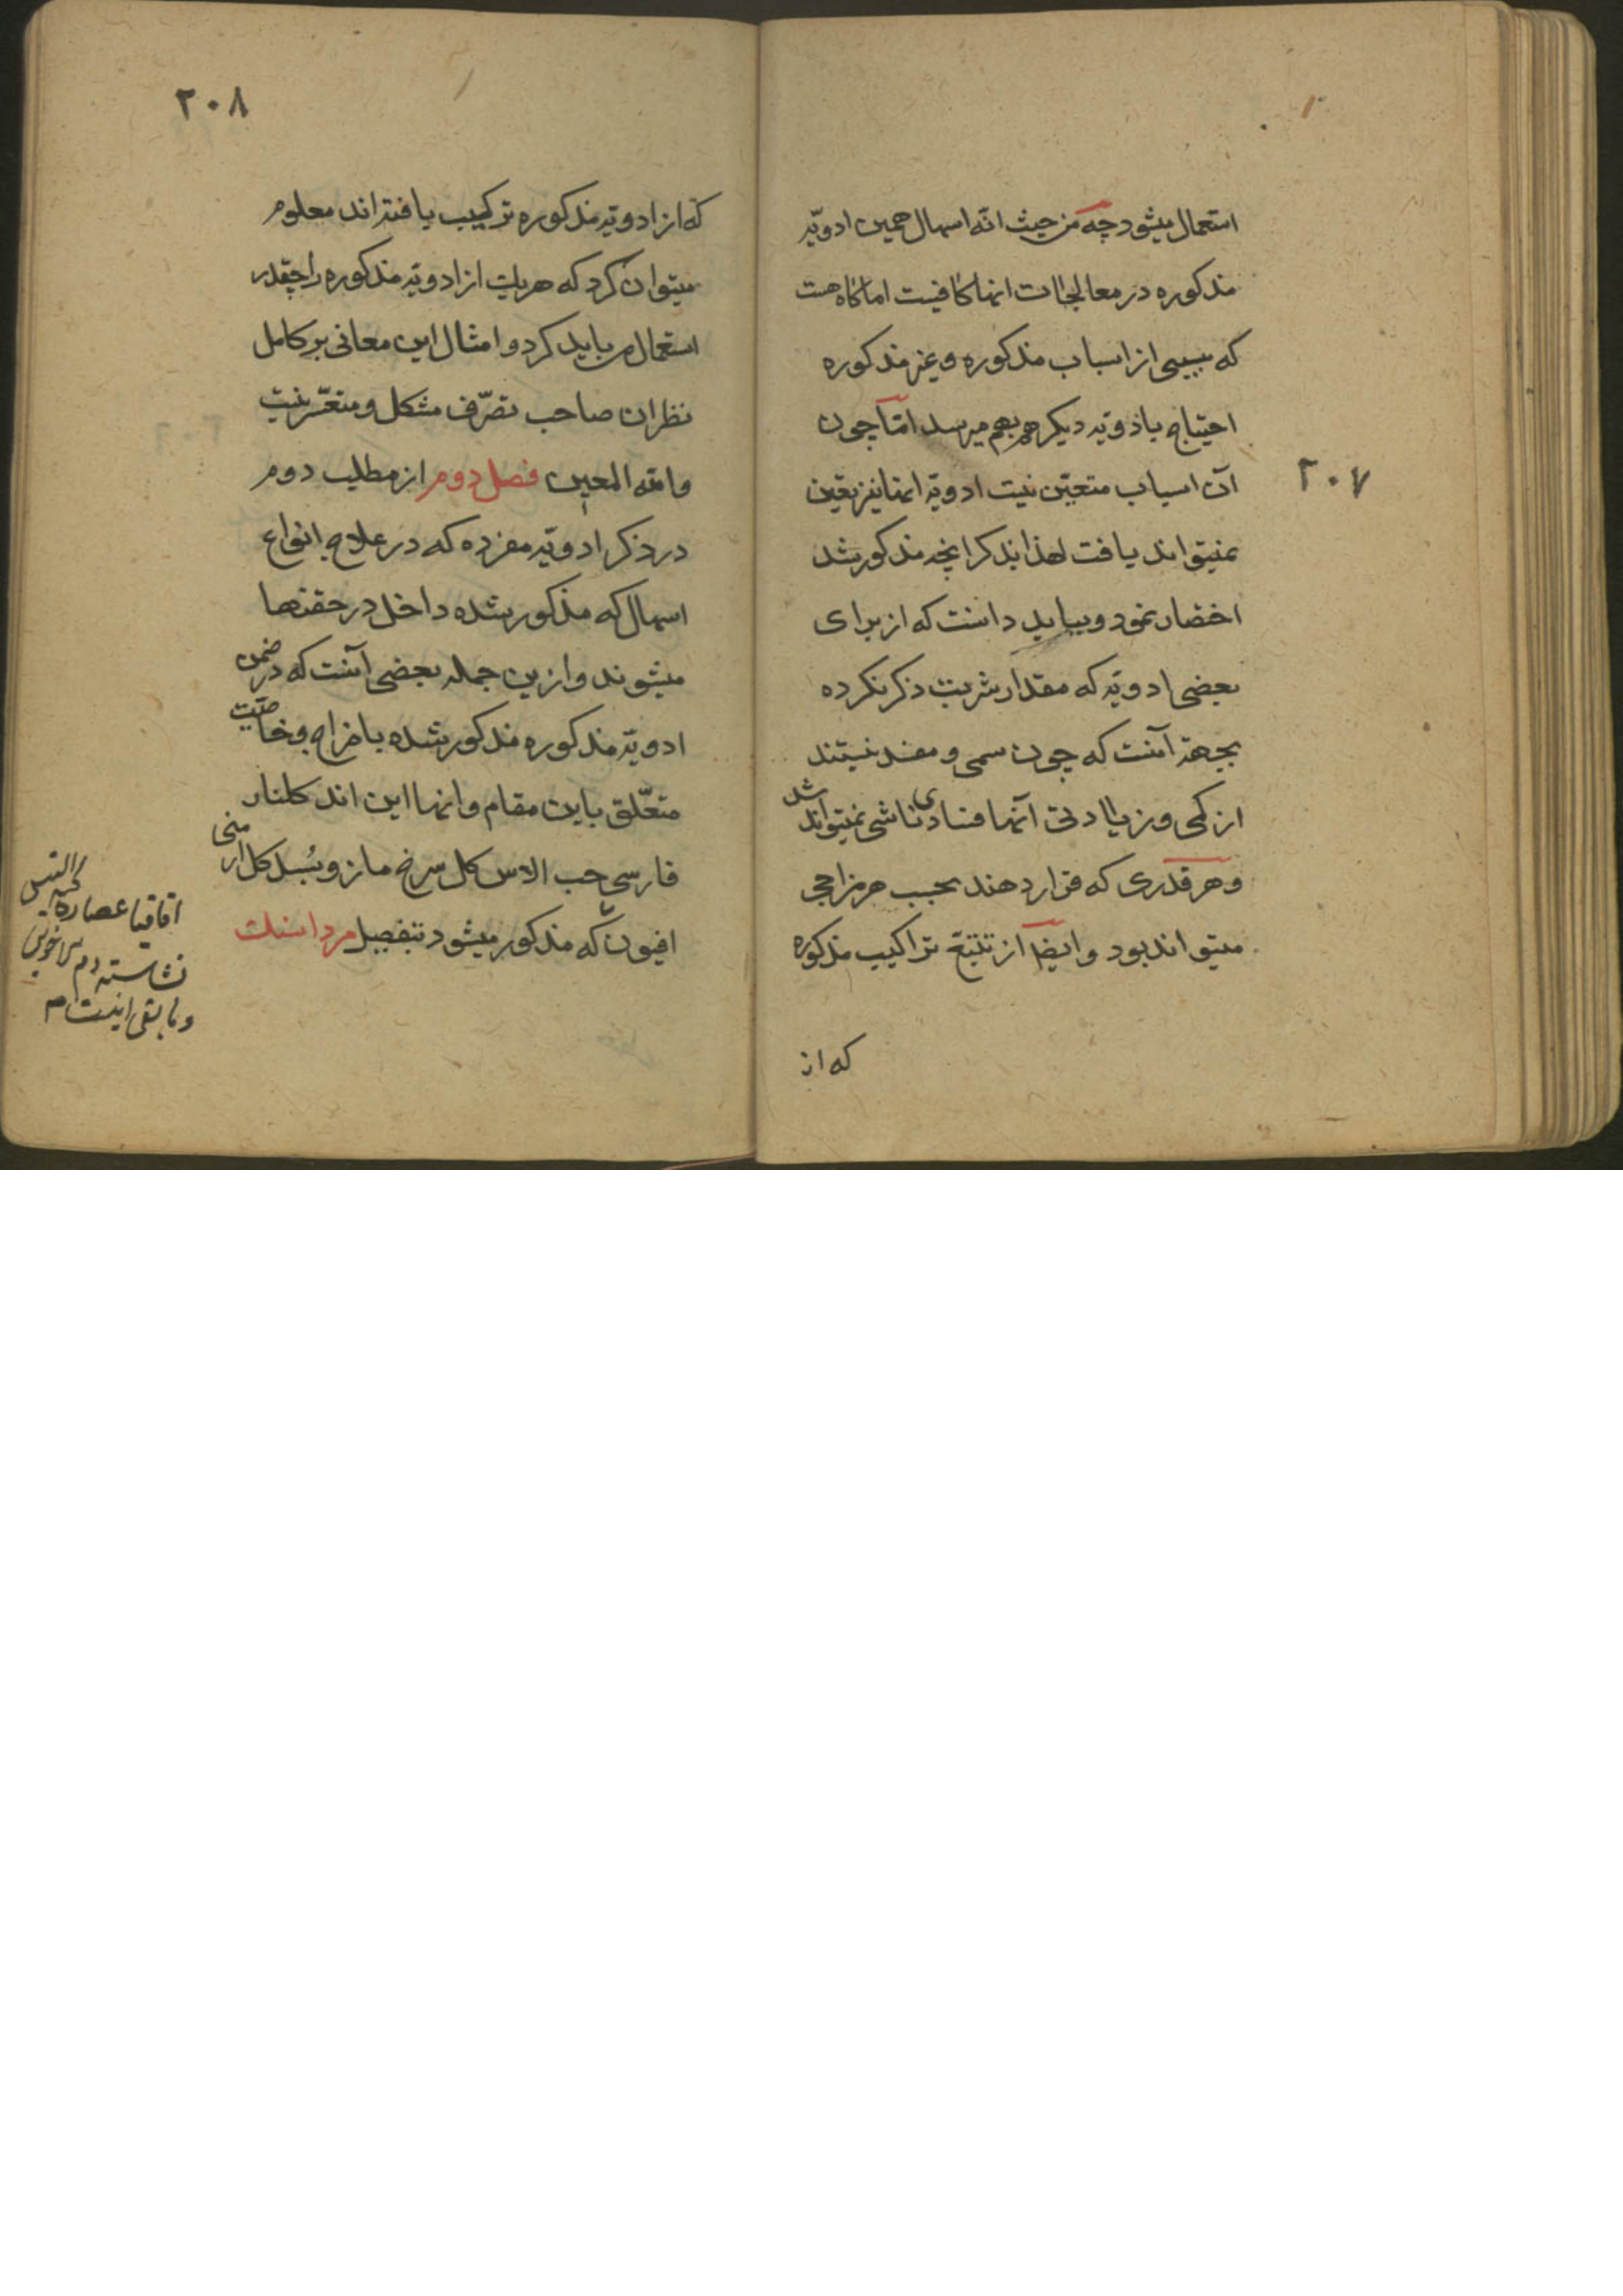 استعمال میشود چه من حیث انّه اسهال همین ادویّه
مذکوره در معالجات انها کافیست اما کاه هست
که بسببی از اسباب مذکوره و غیر مذکوره
احتیاج بادویّه دیکر هم بهم میرسد امّا چون
آن اسباب متعیّن نیست ادویّهٔ انها نیز تعیّن
نمیتواند یافت لهذا بذکر انچه مذکور شد
اختصار نمود و بباید دانست که از برای
بعضی ادویّه که مقدار شربت ذکر نکرده
بجهة آنست که چون سمی و مفسد نیستند
از کمی و زیادتی آنها فسادی ناشی نمیتواند شد
و هر قدری که قرار دهند بحسب هر مزاجی
میتواند بود و ایضا از تتبّع تراکیب مذکوره
که از
۲۰۷
۲۰۸
که از ادویّه مذکوره ترکیب یافته اند معلوم
میتوان کرد که هریک از ادویّه مذکوره را چقدر
استعمال می باید کرد و امثال این معانی بر کامل
نظران صاحب تصرّف مشکل و متعسّر نیست
والله المعین فصل دوم از مطلب دوم
در ذکر ادویّه مفرده که در علاج انواع
اسهال که مذکور شده داخل در حقنها
میشوند و ازین جمله بعضی آنست که در ضمن
ادویّه مذکوره مذکور شده با مزاج و خاصّیت
متعلّق باین مقام و انها این اند کلنار
فارسی حب الاس کل سرخ مازو بُسد کل ارمنی
افیون که مذکور میشود بتفصیل مرداسنک
اقاقیا عصاره لحیة التیس
نشاسته دم الاخوین
و مابقی اینست